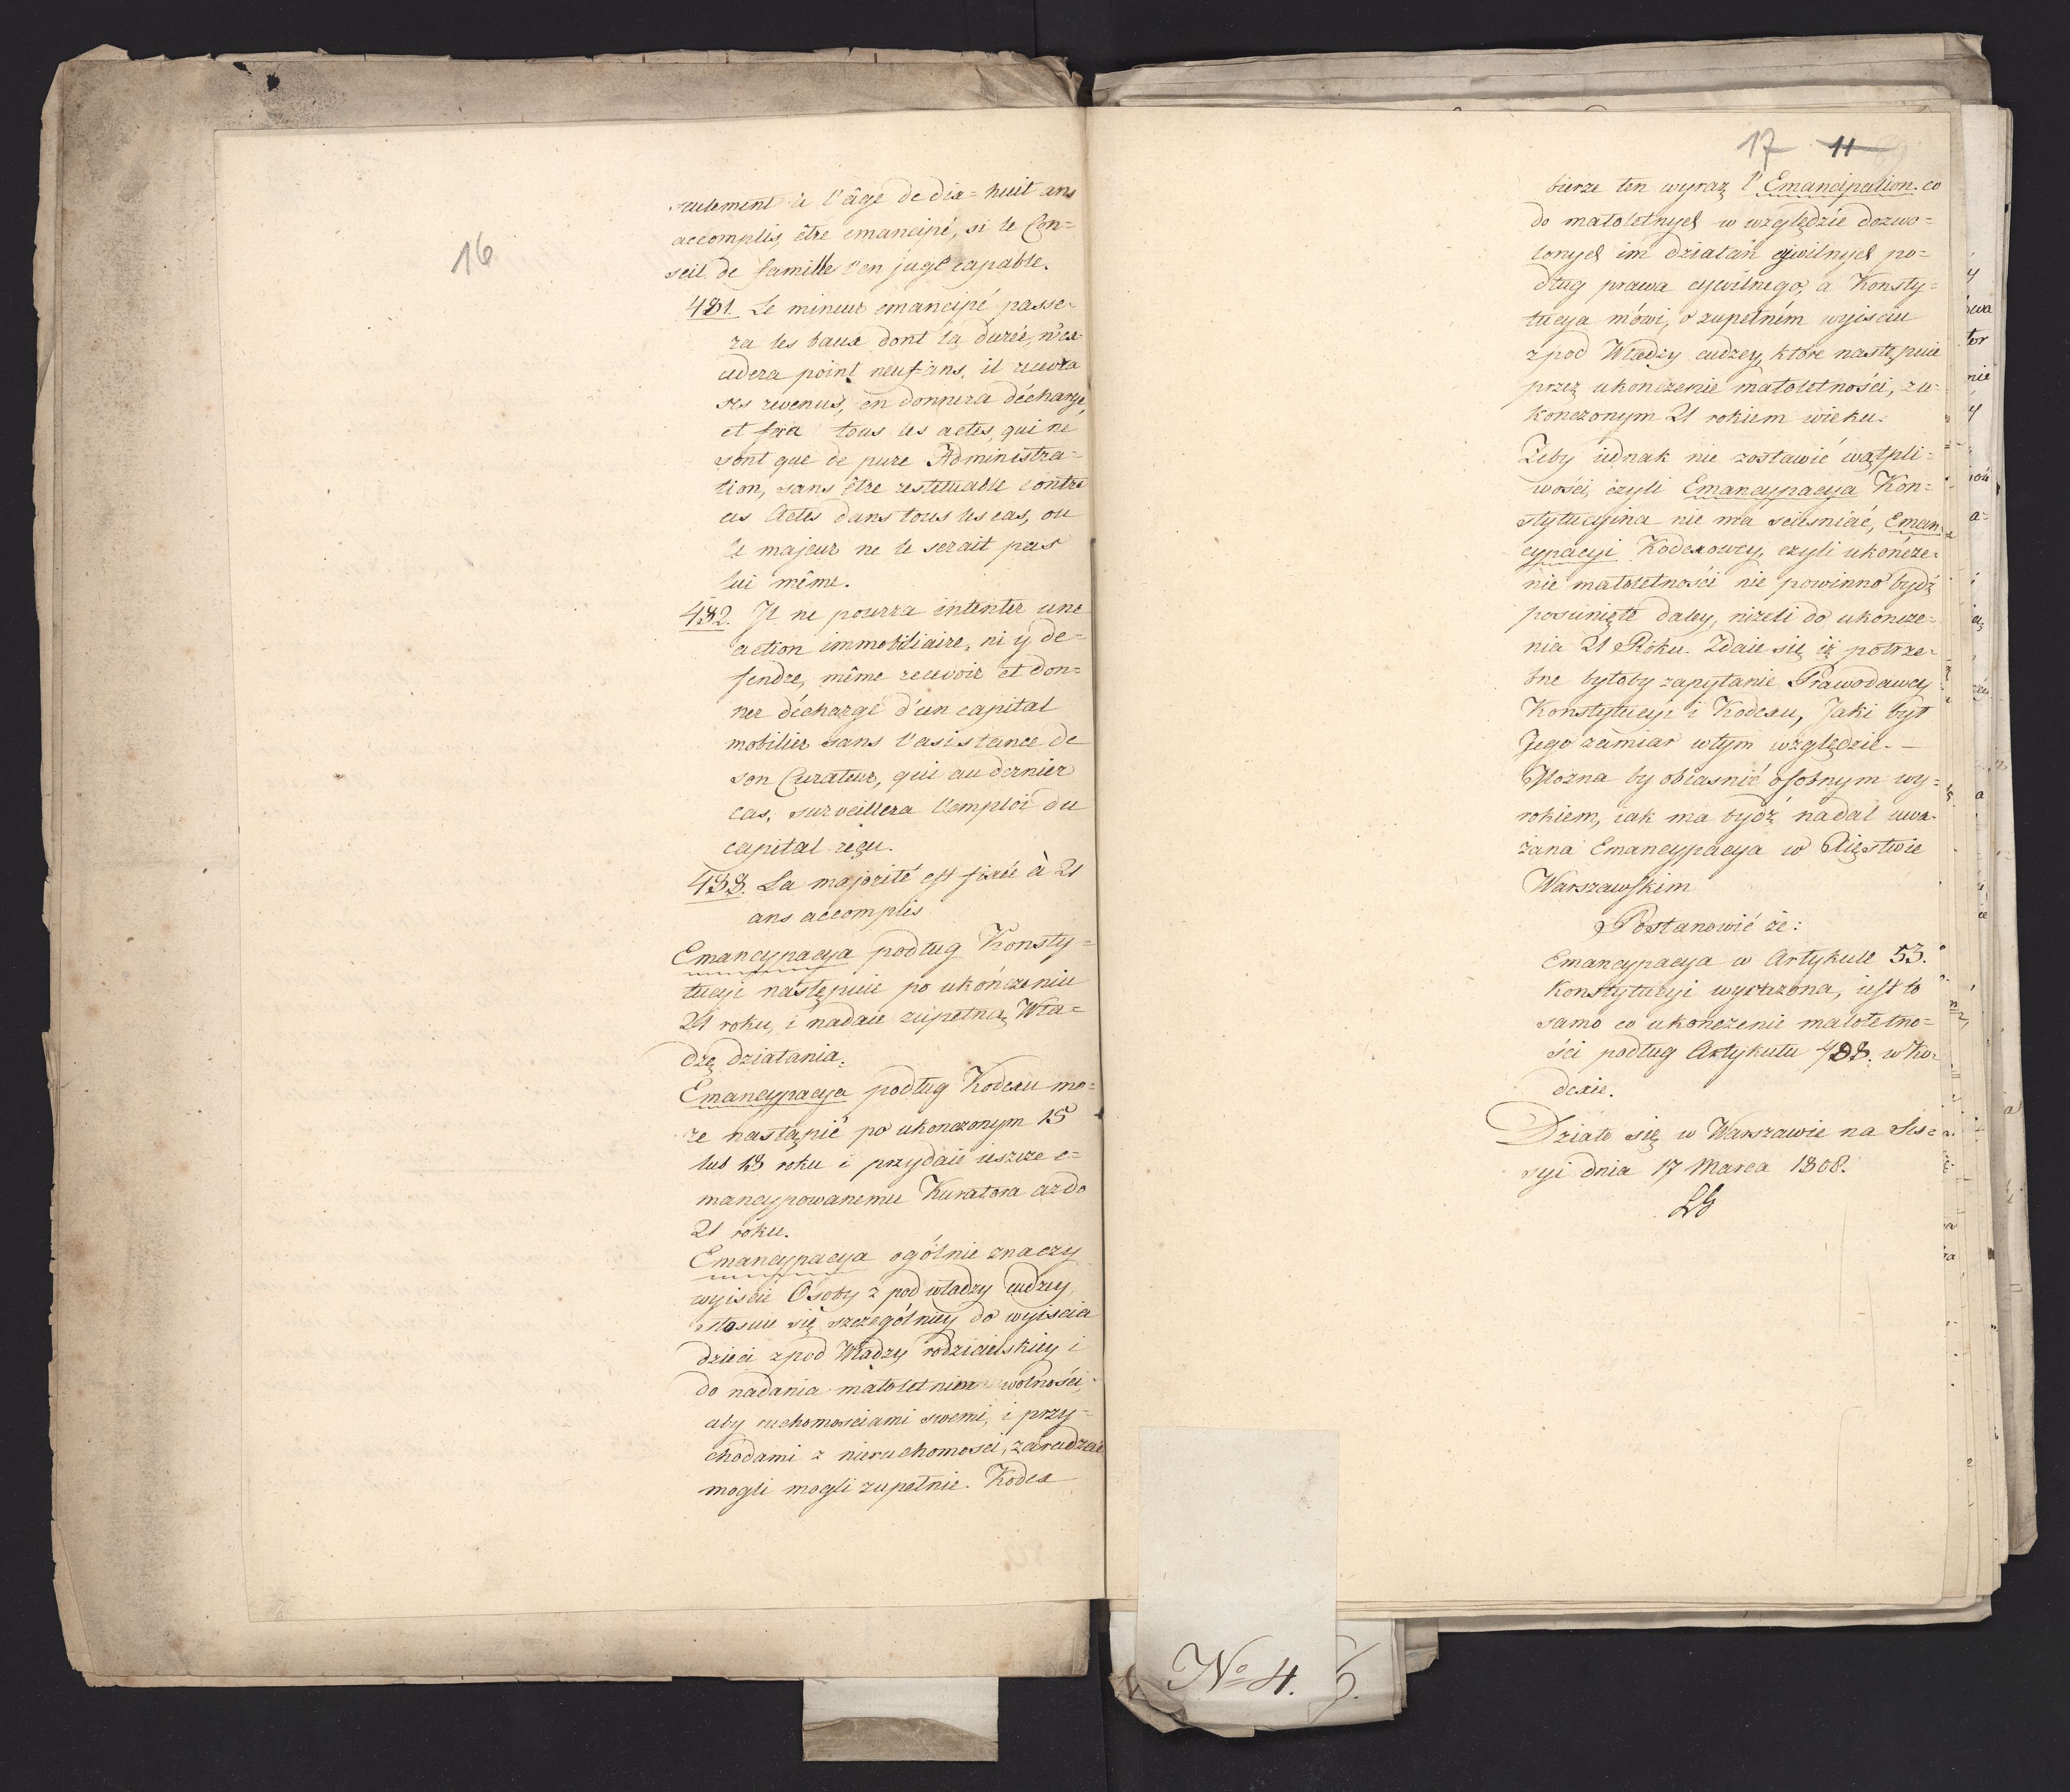 16
seulement à l'âge de dix=huit ans
accomplis, être emancipé, si le Con=
seil de famille l'en juge capable.
481. Le mineur emancipé passe=
ra les baux dont la durée, n'ex=
cedera point neuf ans, il recevra
ses revenus, en donnera décharge,
et fera tous les actes, qui ne
sont que de pure Administra=
tion, sans être restituable contre
ces Actes dans tous les cas, ou
le majeur ne le serait pas
lui même.
482. Il ne pourra intenter une
action immobiliaire, ni y de=
fendre, même recevoir et don=
ner décharge d'un capital
mobilier sans l'asistance de
son Curateur, qui au dernier
cas, surveillera l'emploi du
capital reçu.
488. La majorité est fixée à 21
ans accomplis
Emancypacya podług Konsty=
tucyi następuie po ukończeniu
21 roku, i nadaie zupełną Wła=
dzę działania.
Emancypacya podług Kodexu mo=
że nastąpić po ukonczonym 15
lub 18 roku i przydaie ieszcze e=
mancypowanemu Kuratora az do
21 roku.
Emancypacya ogólnie znaczy
wyiscie Osoby z pod władzy cudzey,
stosuie się szczególniey do wyiscia
dzieci zpod Władzy rodzicielskiey i
do nadania małoletnim wolności,
aby ruchomosciami swemi, i przy=
chodami z nieruchomosci, zarządzać
mogli mogli zupełnie. Kodex
17 11 89
bierze ten wyraz l'Emancipation. co
do małoletnych w względzie dozwo=
lonych im działań cywilnych po=
dług prawa cywilnego, a Konsty=
tucya mówi, o zupełnim wyisciu
zpod Władzy cudzey, które następuie
przez ukonczenie małoletności, zu=
konczonym 21 rokiem wieku.
Zeby iednak nie zostawić wątpli=
wości, czyli Emancypacya Kon=
stytucyina nie ma sciesniać, Eman=
cypacyi Kodexowey, czyli ukończe=
nie małoletności nie powinno bydź
posunięte daley, niżeli do ukoncze=
nia 21 Roku. Zdaie się iż potrze=
bne byłoby zapytanie Prawodawcy
Konstytucyi i Kodexu, Jaki był
Jego zamiar wtym względzie. —
Można by obiasnić osobnym wy=
rokiem, iak ma bydź nadal uwa=
żana Emancypacya w Xięstwie
Warszawskim
Postanowić że:
Emancypacya w Artykule 53.
Konstytucyi wyrażona, iest to
samo co ukonczenie małoletno=
ści podług Artykułu 488. w Ko=
dexie.
Działo się w Warszawie na Ses=
syi dnia 17 Marca 1808.
No 4.